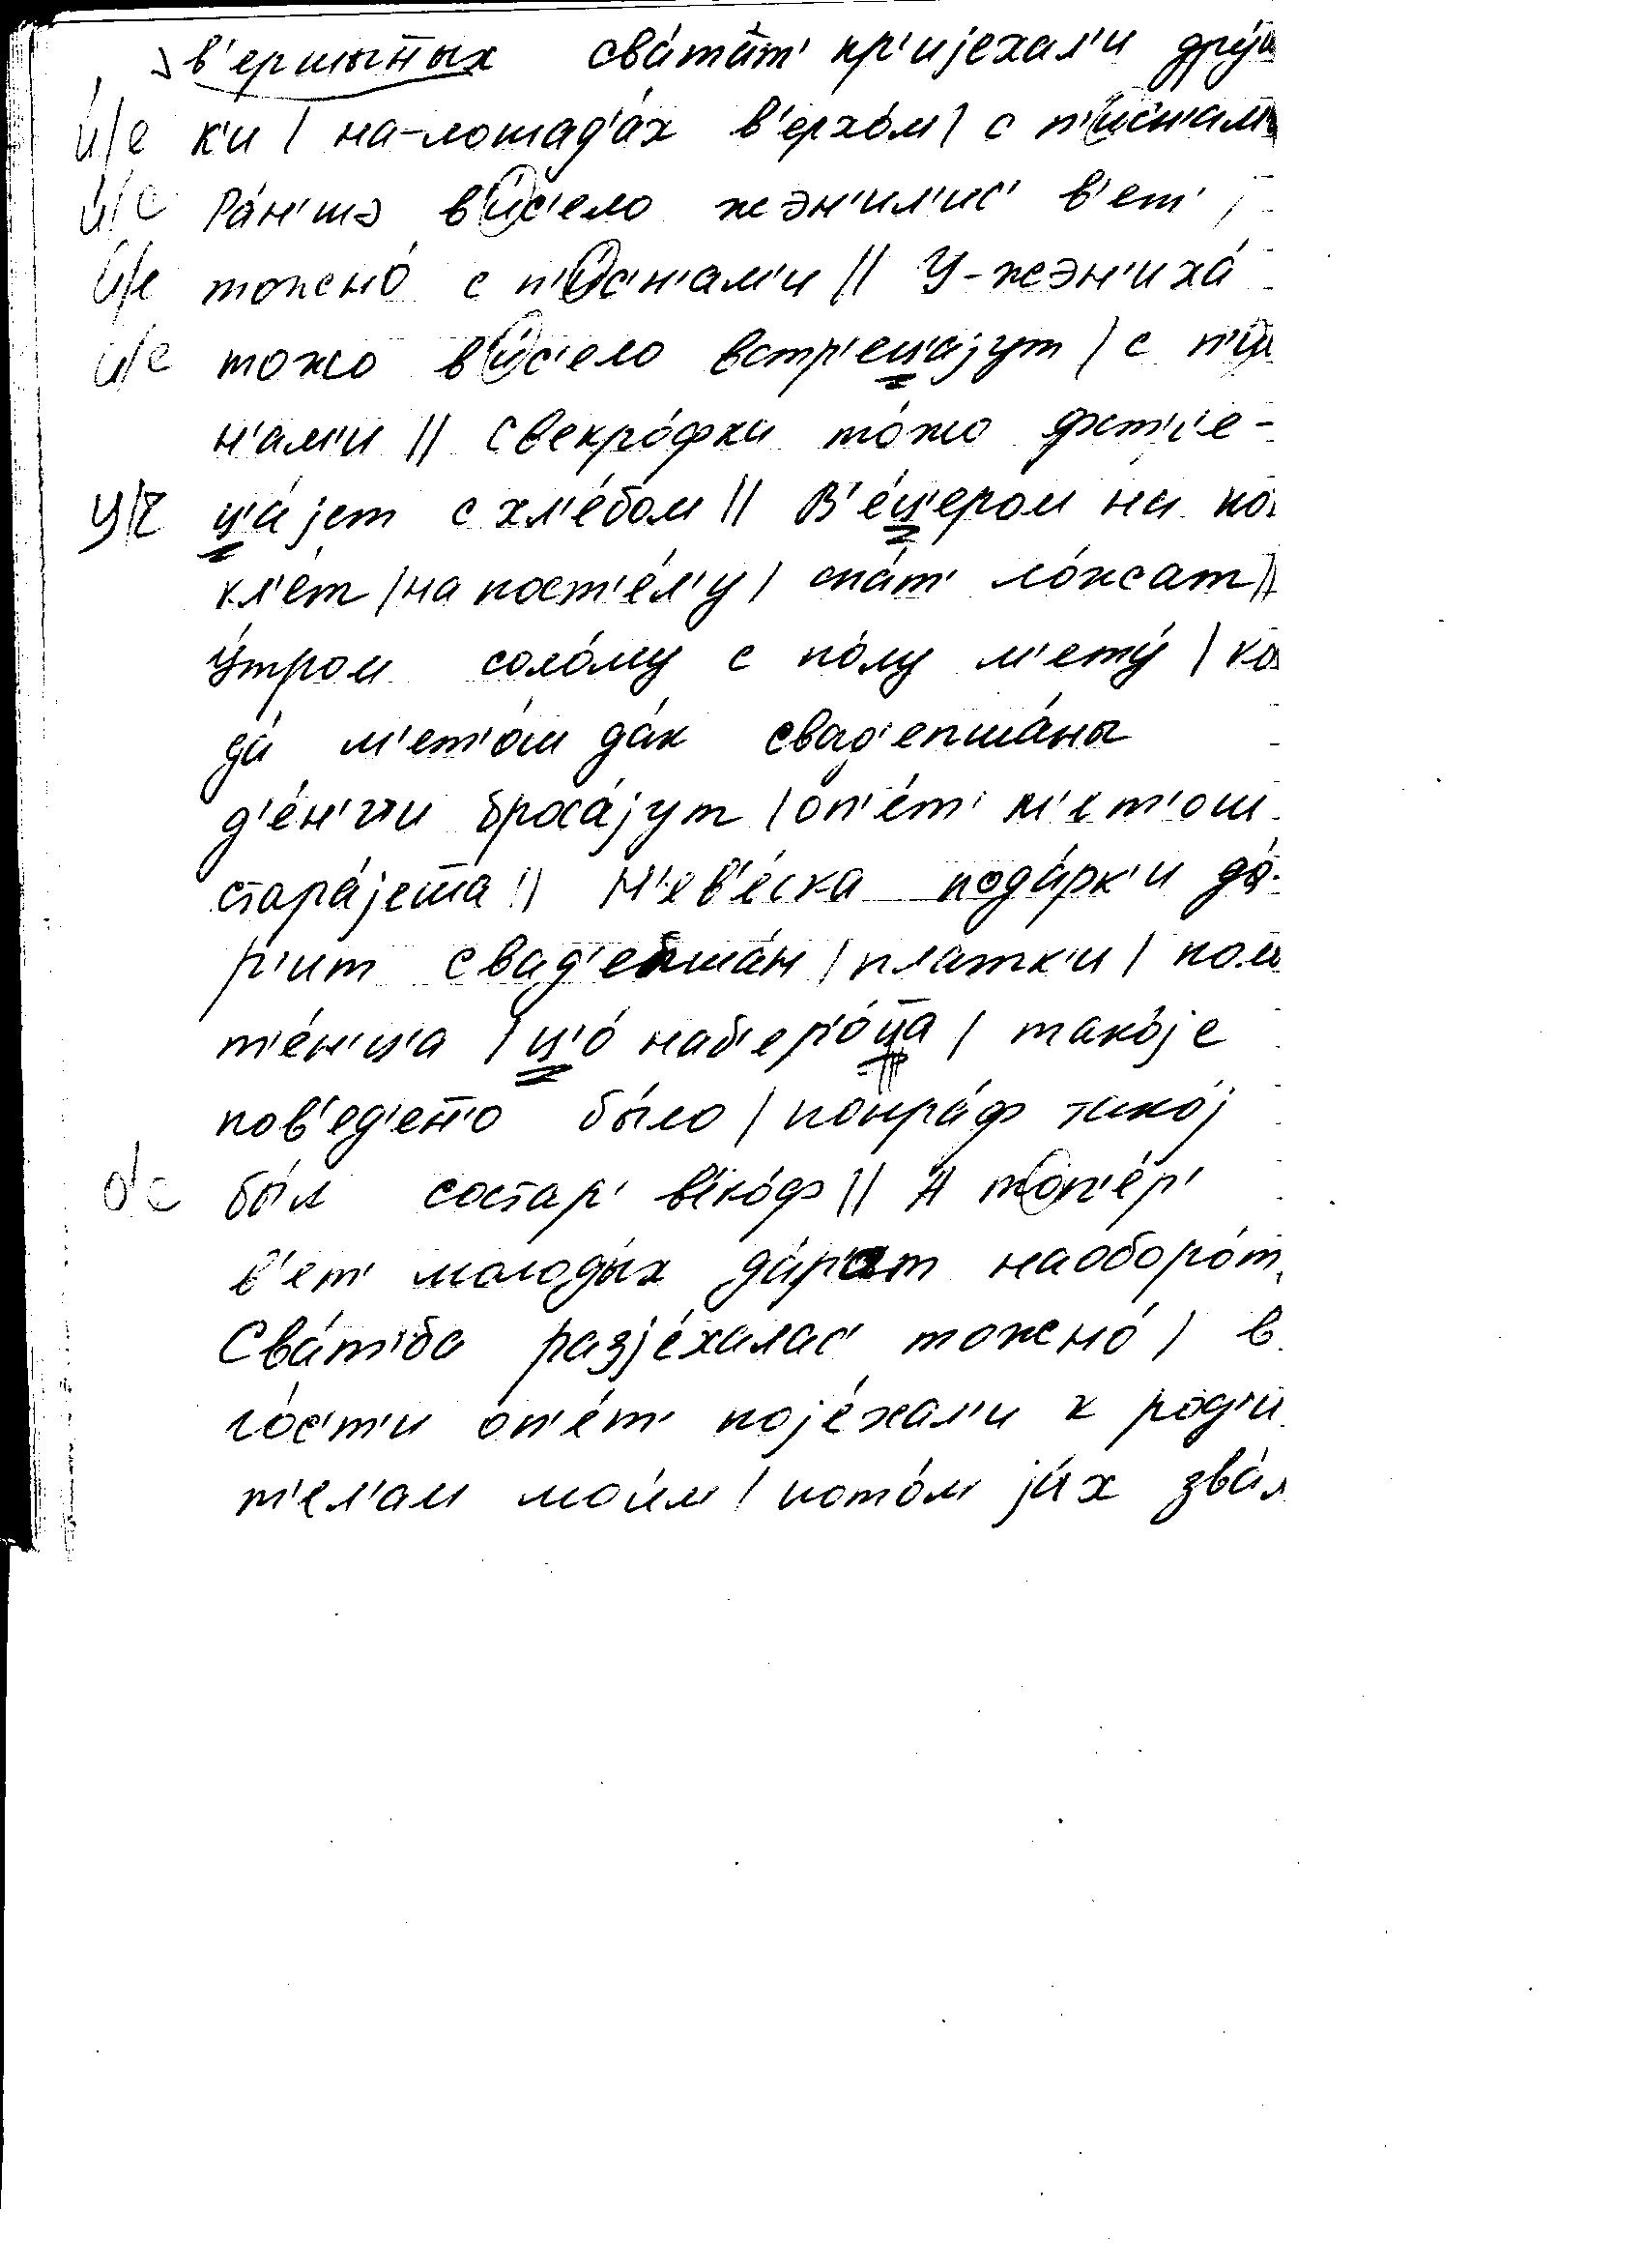 в'ершы̄ных сва́тат' пр'ијехал'и дру́ж
и́/е к'и | на-лошад'а́х в'ерхо́м | с п'и́с'н'ам'и
и́/е Ра́н'шэ в'и́с'ело жэн'ил'ис' в'ет' |
и́/е тожно́ с п'и́с'н'ам'и || У-жэн'иха́
и́/е тожо в'и́с'ело встр'ец'а́јут | с п'и́с'
н'ам'и || Свекро́фка то́жо фстр'е-
ц/ч ц'а́јет с хл'е́бом || В'е́ц'ером на по
кл'е́т | на пост'е́л'у | спа́т' ло́жат ||
У́тром соло́му с по́лу м'ету́ | ко
да́ м'ет'о́м да́к свад'епша́ны
д'е́н'г'и броса́јут | оп'е́т' м'ет'ош
стара́јет̄а || Н'ев'е́ска пода́рк'и да́-
р'ит свад'епша́н | платк'и | поло
т'е́н'ц'а | ц'о́ наб'ер'о́ц̄а | тако́је
пов'ед'ен̄'о бы́ло | понра́ф тако́ј
о/е бы́л состар' в'еко́ф || А т'оп'е́р'
в'ет' молоды́х да́р'ат наоборо́т.
Сва́т'ба разје́халас' тожно́ | в
го́с'т'и оп'е́т' поје́хал'и к род'и́
т'ел'ам мои́м | пото́м јих зва́л